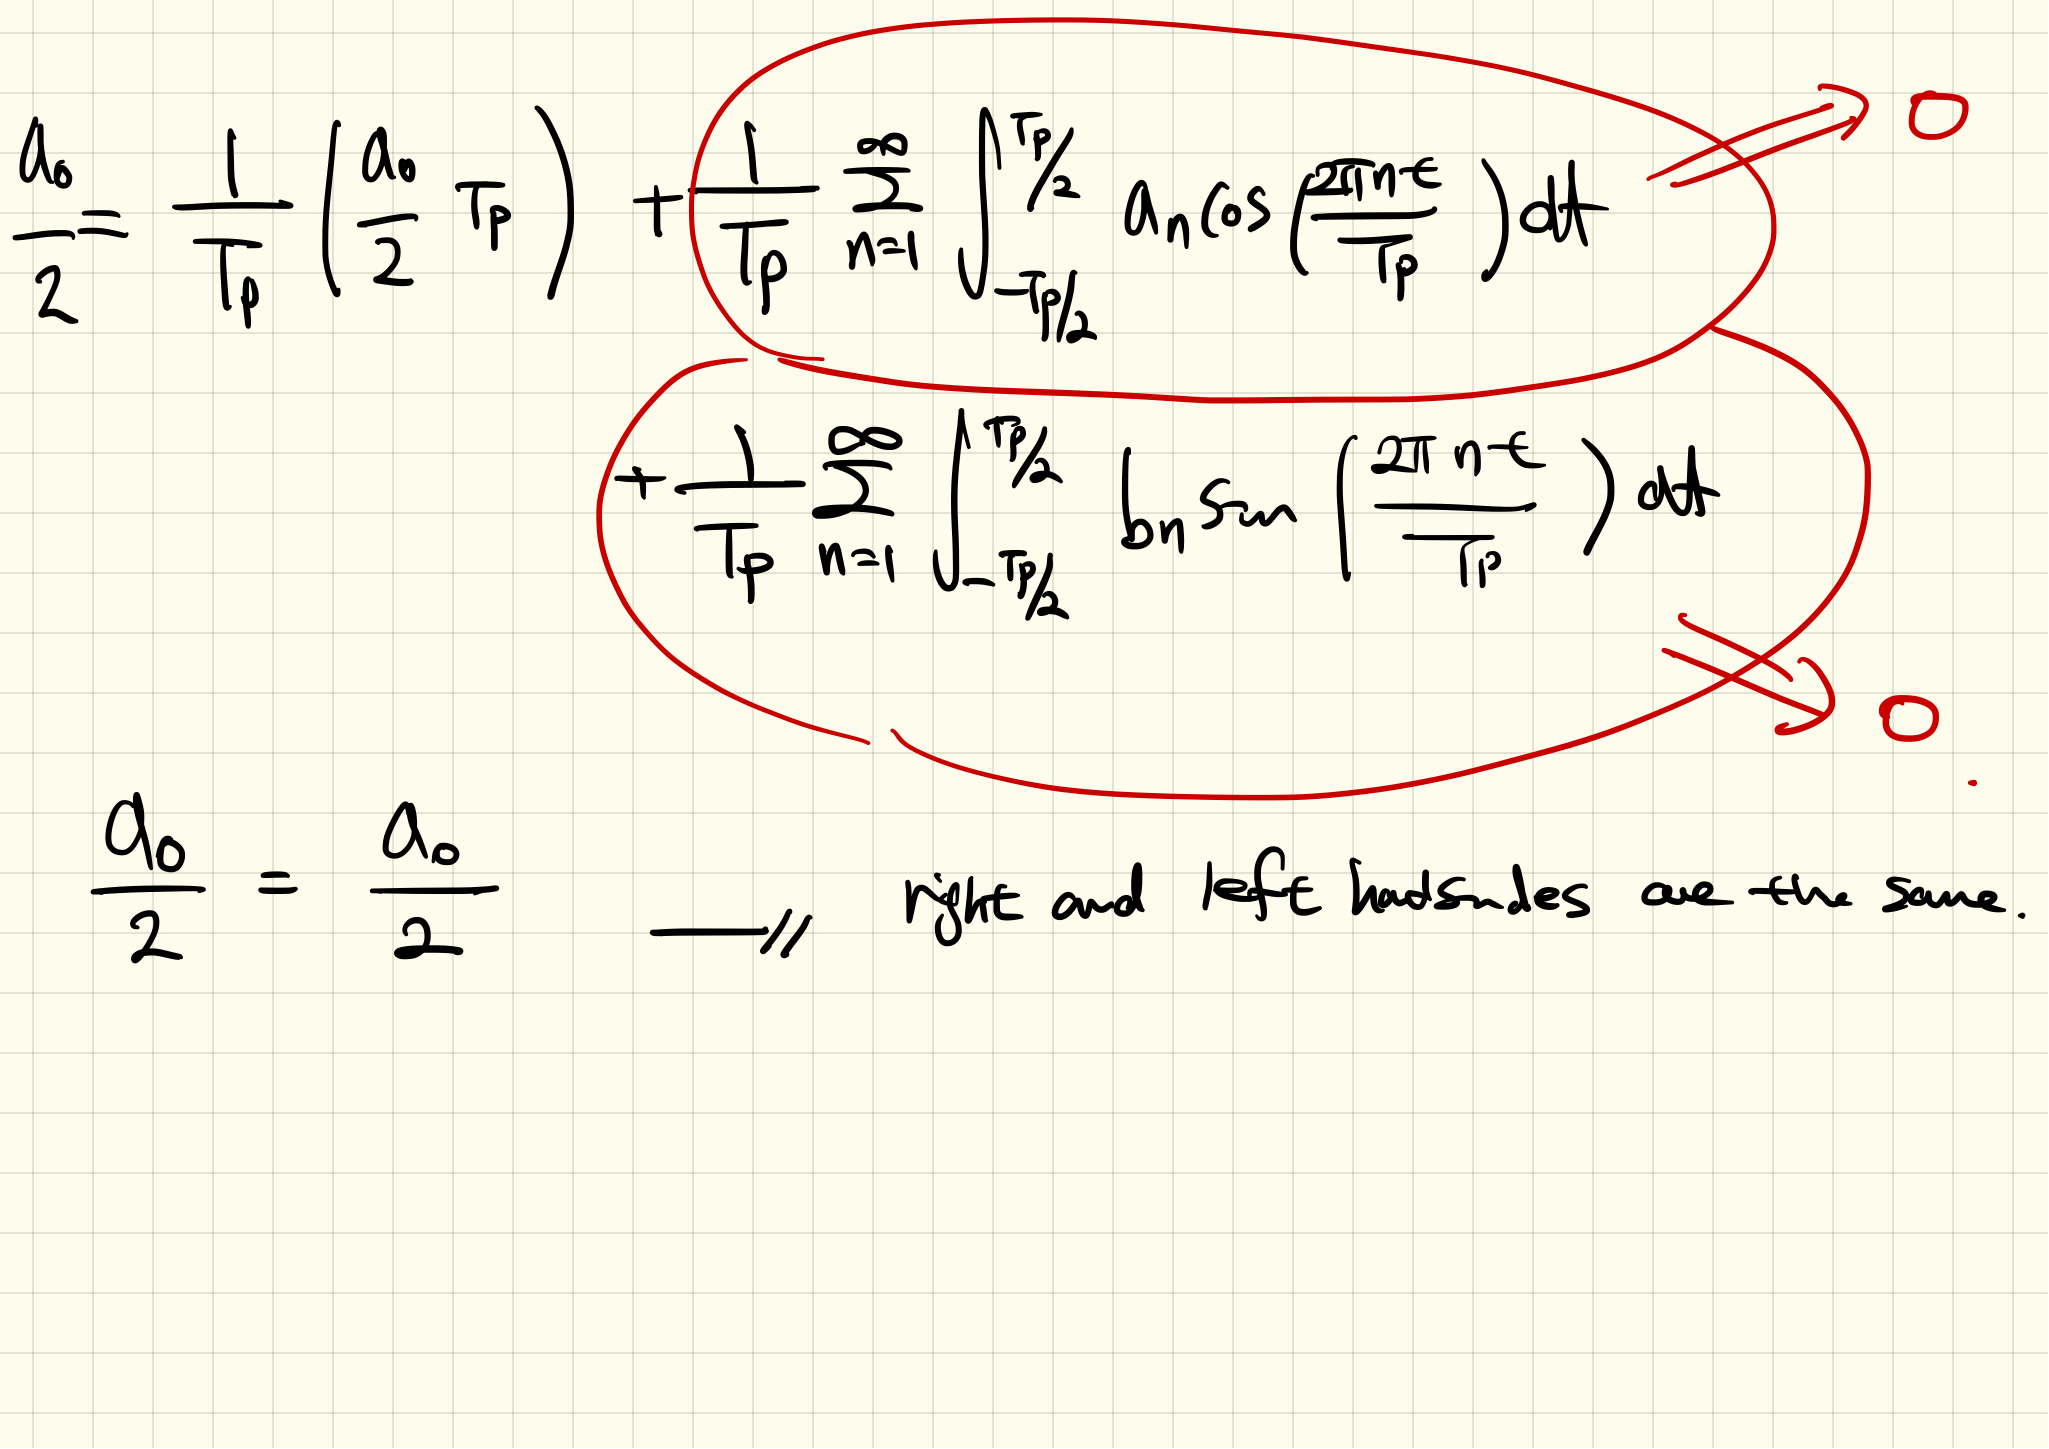 a₀/2 = 1/Tp (a₀/2 Tp) + 1/Tp ∑_{n=1}^{∞} ∫_{-Tp/2}^{Tp/2} aₙ cos(2πnt/Tp) dt ⇒ 0
+ 1/Tp ∑_{n=1}^{∞} ∫_{-Tp/2}^{Tp/2} bₙ sin(2πnt/Tp) dt ⇒ 0
a₀/2 = a₀/2 —// right and left hadsides are the same.